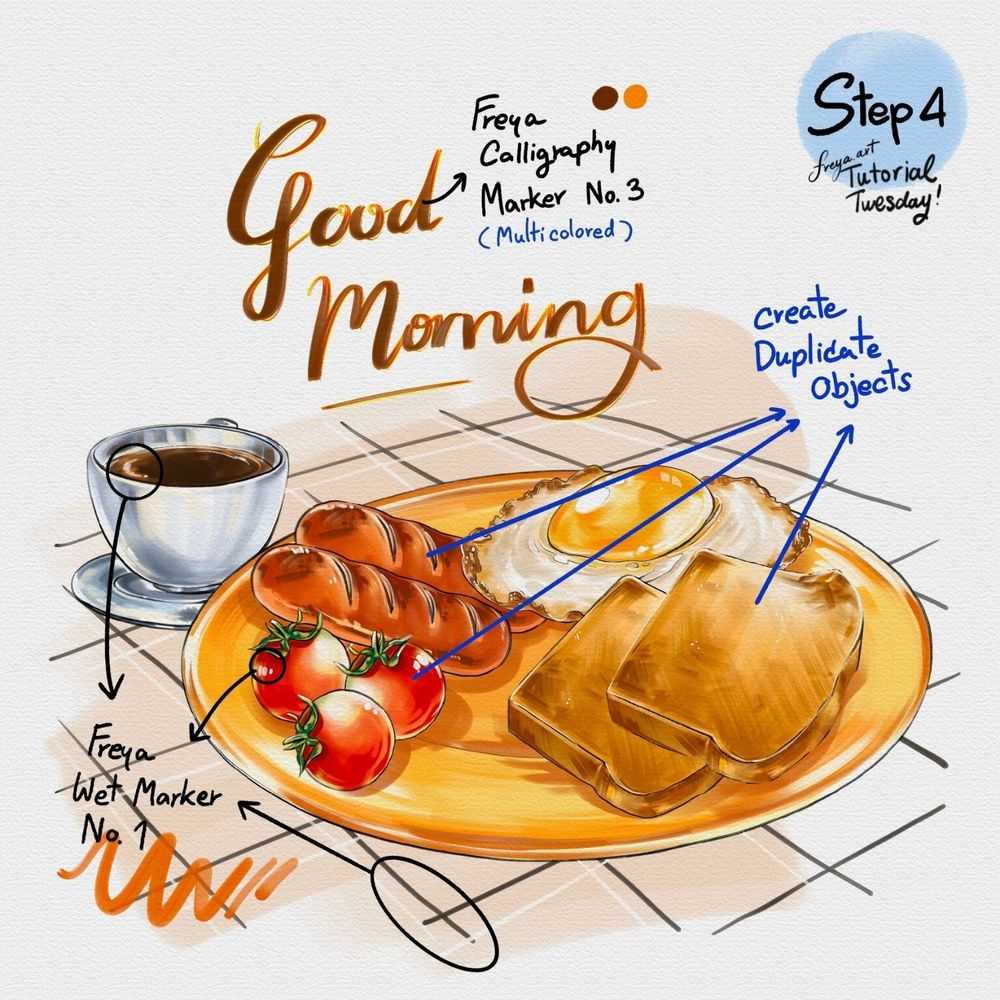 Good
Morning
Freya
Calligraphy
Marker No. 3
(Multicolored)
Step 4
freya.art
Tutorial
Tuesday!
create
Duplicate
Objects
Freya
Wet Marker
No. 1